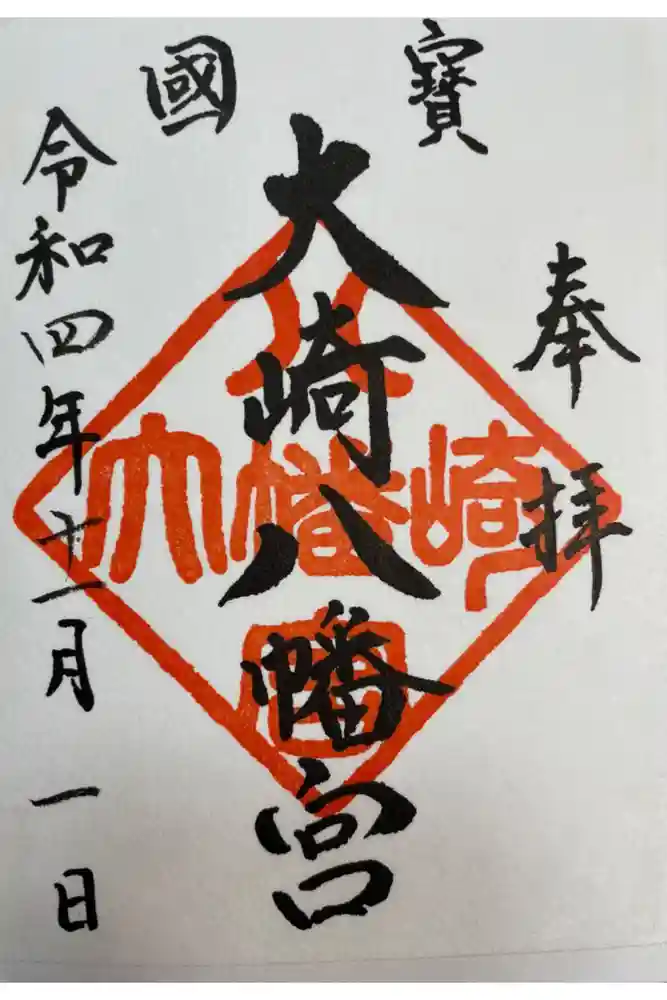 寶
國
奉拝
大崎八幡宮
大崎八幡宮
令和四年十一月一日